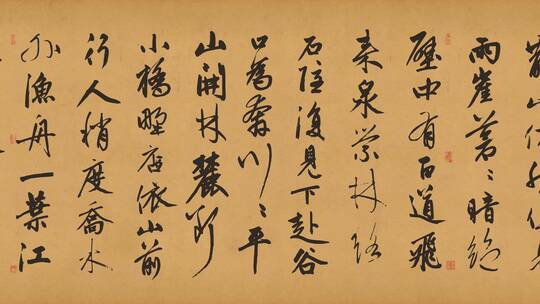 雨崖蒼〻暗絕
壑中有百道飛
来泉縈林絡
石隱復見下赴谷
口為奔川〻平
山開林麓斷
小橋野店依山前
行人稍度喬木
外漁舟一葉江